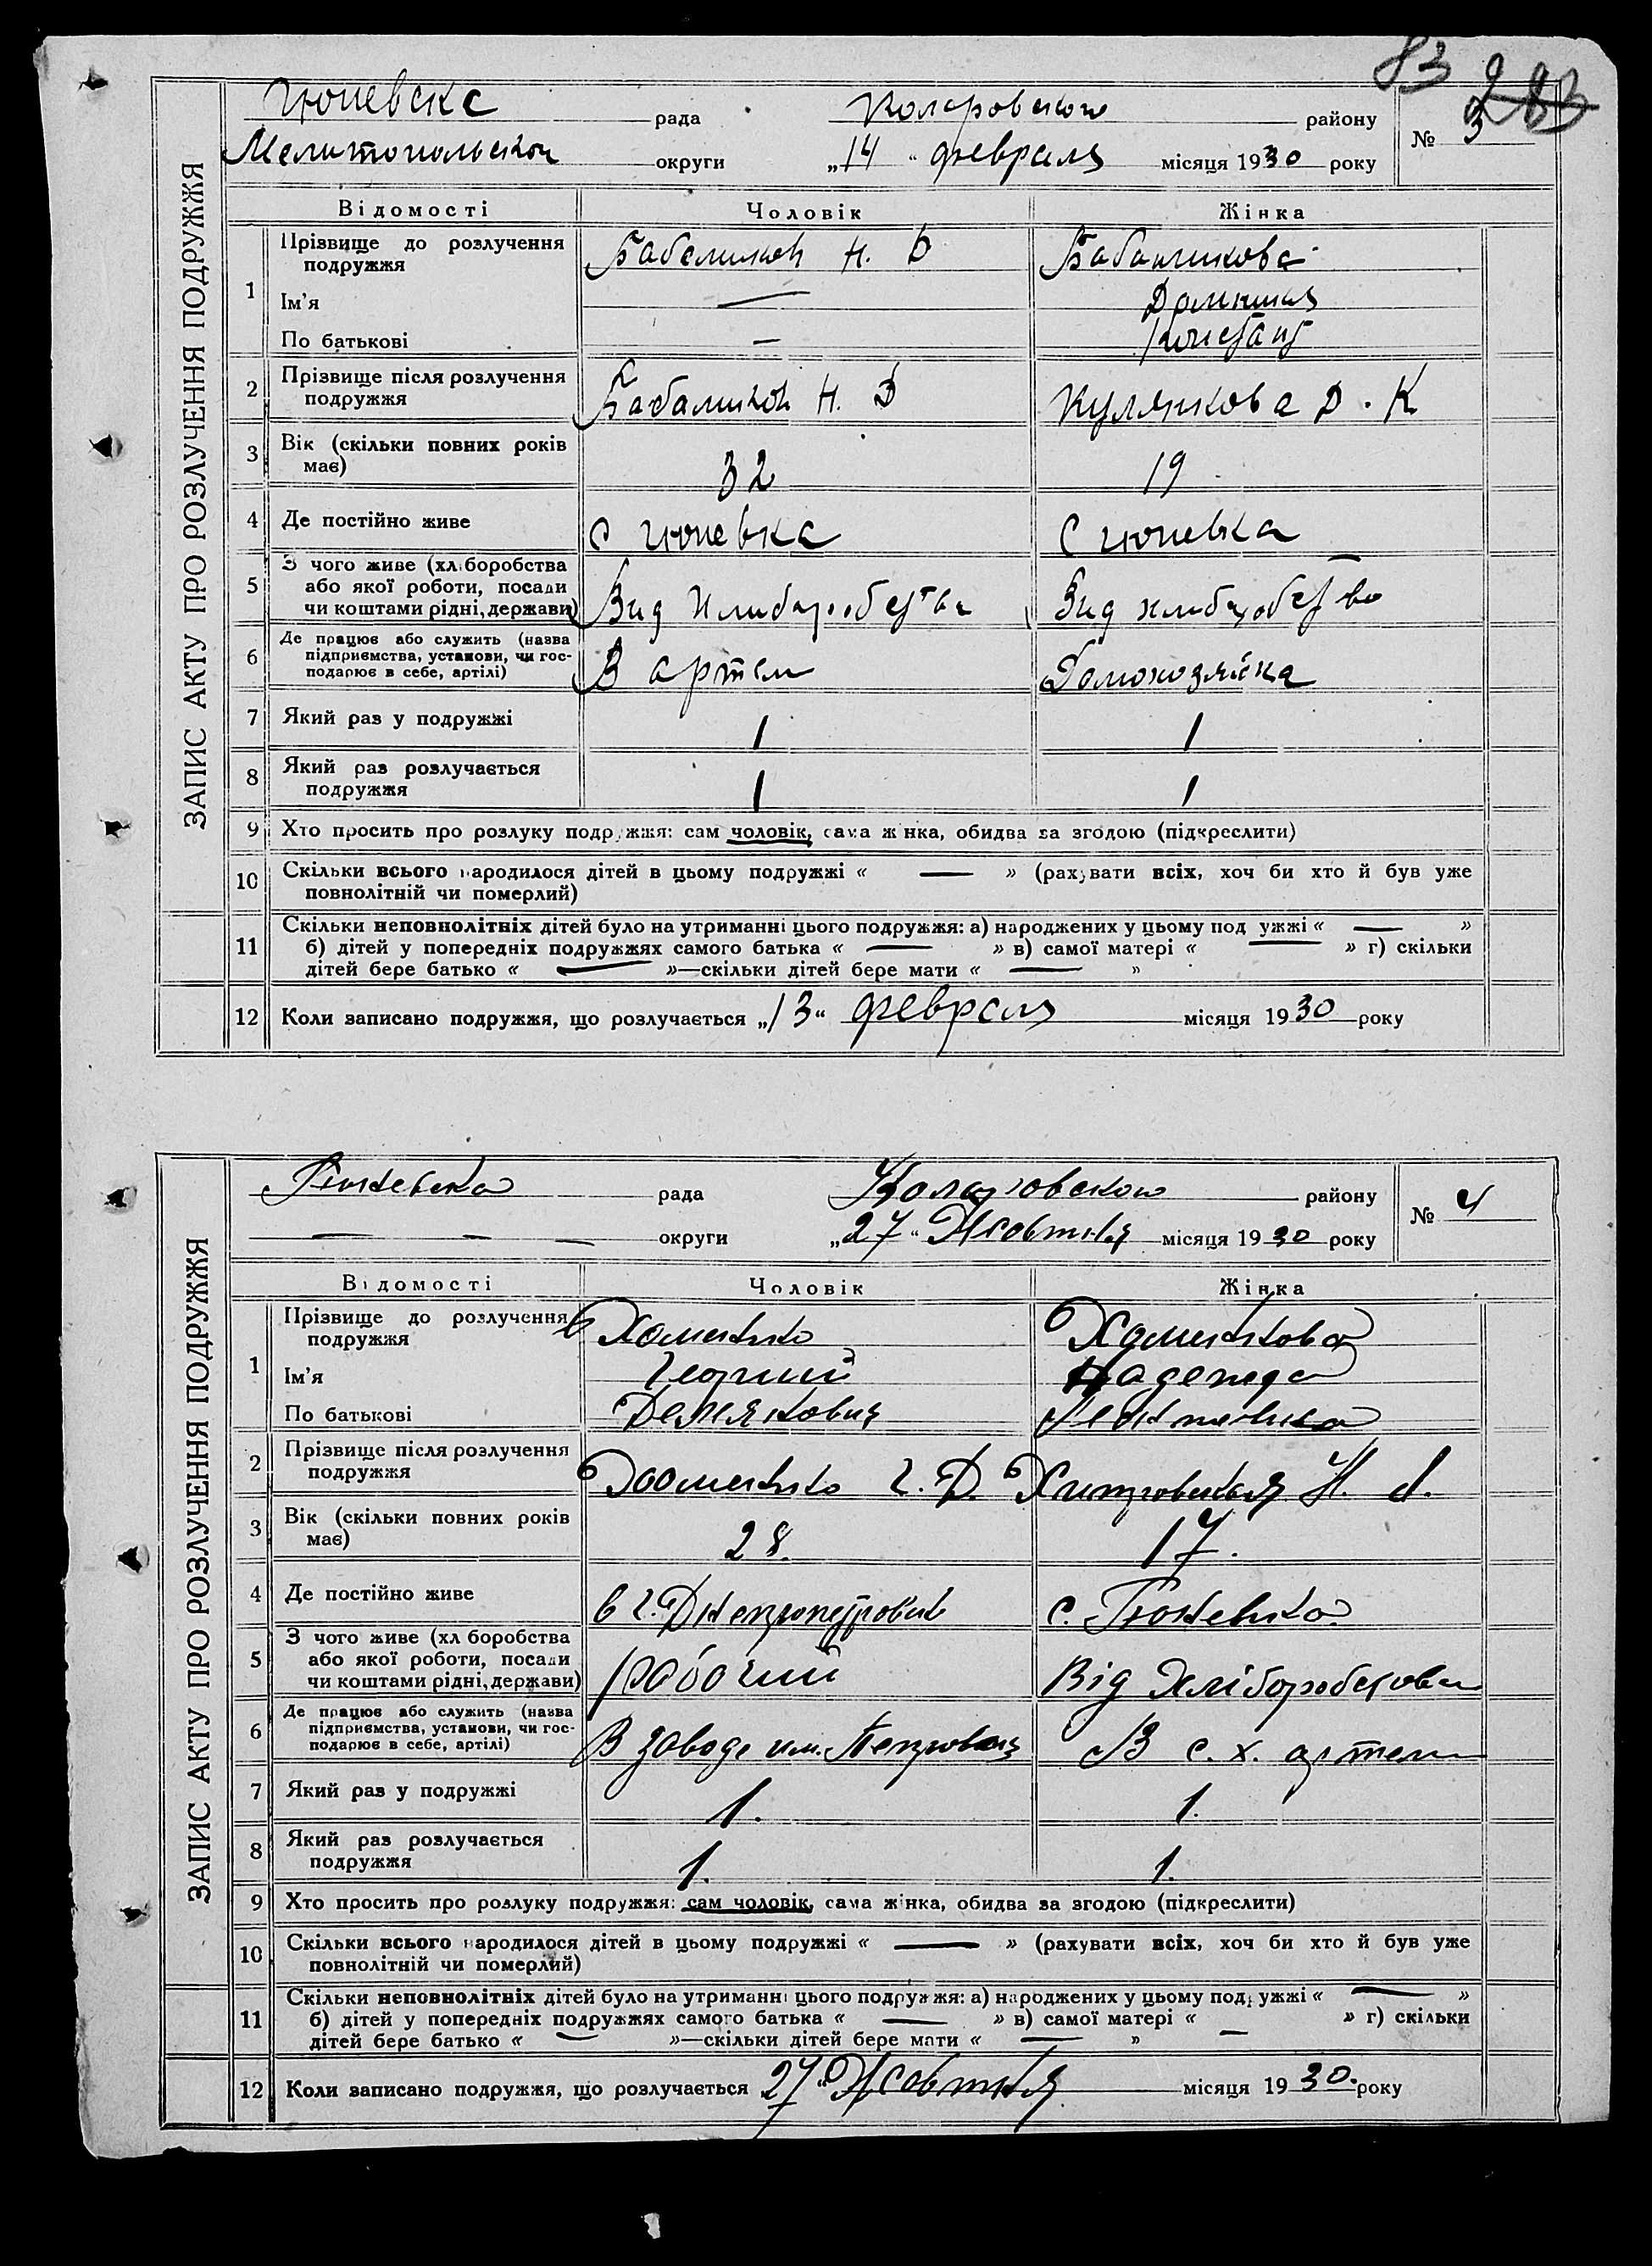 83 283
Гюневска рада Коларовском району № 3
Мелитопольском округи „14“ февраля місяця 1930 року
ЗАПИС АКТУ ПРО РОЗЛУЧЕННЯ ПОДРУЖЖЯ
Відомості Чоловік Жінка
1 Прізвище до розлучення подружжя Н. Д
Ім’я —
По батькові —
2 Прізвище після розлучення подружжя Н. Д Кулинкова Д. К
3 Вік (скільки повних років має) 32 19
4 Де постійно живе С Гюневка С Гюневка
5 З чого живе (хліборобства
або якої роботи, посади
чи коштами рідні, держави) Вид хлиборобства Вид
6 Де працює або служить (назва
підприємства, установи, чи гос-
подарює в себе, артілі) В артели Домохозяйка
7 Який раз у подружжі 1 1
8 Який раз розлучається
подружжя 1 1
9 Хто просить про розлуку подружжя: сам чоловік, сама жінка, обидва за згодою (підкреслити)
10 Скільки всього народилося дітей в цьому подружжі « — » (рахувати всіх, хоч би хто й був уже
повнолітній чи померлий)
11 Скільки неповнолітніх дітей було на утриманні цього подружжя: а) народжених у цьому подружжі « — »
б) дітей у попередніх подружжях самого батька « — » в) самої матері « — » г) скільки
дітей бере батько « — »—скільки дітей бере мати « — »
12 Коли записано подружжя, що розлучається „13“ февраля місяця 1930 року
Гюневка рада Коларовском району № 4
— — — округи „27“ Жовтня місяця 1930 року
ЗАПИС АКТУ ПРО РОЗЛУЧЕННЯ ПОДРУЖЖЯ
Відомості Чоловік Жінка
1 Прізвище до розлучення
подружжя Хоменко Хоменкова
Ім’я Георгий Надежда
По батькові
2 Прізвище після розлучення
подружжя Хоменко Г. Д. Н. Л.
3 Вік (скільки повних років
має) 28. 17.
4 Де постійно живе в г. Днепропетровск с. Гюневка
5 З чого живе (хліборобства
або якої роботи, посади
чи коштами рідні, держави) рабочий Від Хліборобства
6 Де працює або служить (назва
підприємства, установи, чи гос-
подарює в себе, артілі) В заводе им. В с. х. артели
7 Який раз у подружжі 1. 1.
8 Який раз розлучається
подружжя 1. 1.
9 Хто просить про розлуку подружжя: сам чоловік, сама жінка, обидва за згодою (підкреслити)
10 Скільки всього народилося дітей в цьому подружжі « — » (рахувати всіх, хоч би хто й був уже
повнолітній чи померлий)
11 Скільки неповнолітніх дітей було на утриманні цього подружжя: а) народжених у цьому подружжі « — »
б) дітей у попередніх подружжях самого батька « — » в) самої матері « — » г) скільки
дітей бере батько « — »—скільки дітей бере мати « — »
12 Коли записано подружжя, що розлучається „27“ Жовтня місяця 1930. року